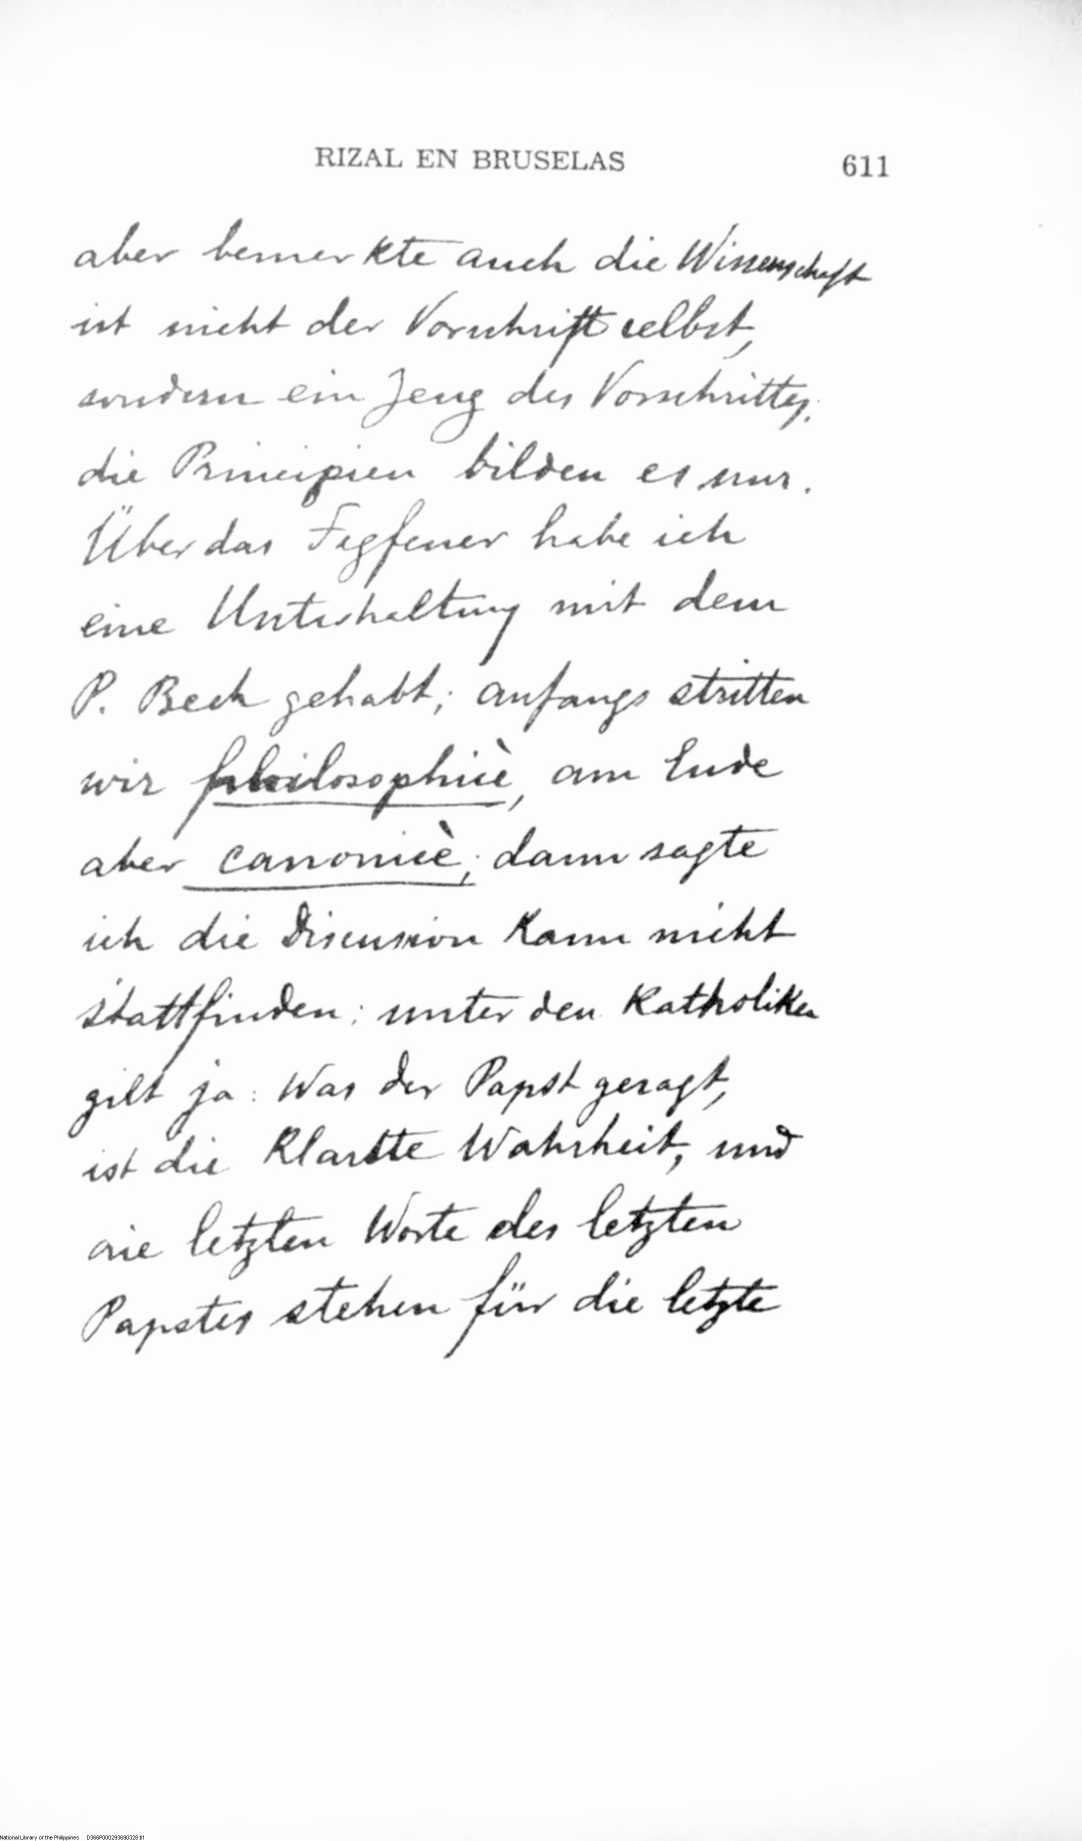 RIZAL EN BRUSELAS 611
aber bemerkte auch die Wissenschaft
ist nicht der Vorschrift selbst,
sondern ein Zeug des Vorschrittes;
die Principien bilden es nur.
Über das Fegfeuer habe ich
eine Unterhaltung mit dem
P. Beck gehabt; anfangs stritten
wir philosophicè, am Ende
aber canonicè; dann sagte
ich die Discussion kann nicht
stattfinden: unter den Katholiken
gilt ja: Was der Papst gesagt,
ist die klarste Wahrheit, und
die letzten Worte des letzten
Papstes stehen für die letzte
National Library of the Philippines